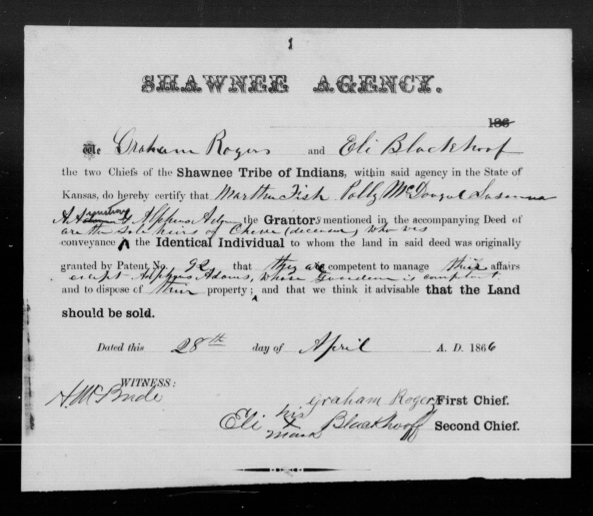 1
SHAWNEE AGENCY.
186
We Graham Rogers and Eli Blackhoof
the two Chiefs of the Shawnee Tribe of Indians, within said agency in the State of
Kansas, do hereby certify that Martha Fish Polly McDougal Susanna
A. Adams & Alphonso the Grantors mentioned in the accompanying Deed of
are the sole heirs of (deceased) who was
conveyance the Identical Individual to whom the land in said deed was originally
granted by Patent No. 92 that they are competent to manage their affairs
except Adams, whose Guardian is competent
and to dispose of their property; and that we think it advisable that the Land
should be sold.
Dated this 28th day of April A. D. 1866
WITNESS:
H. McBride
Graham Rogers First Chief.
Eli his x mark Blackhoof Second Chief.